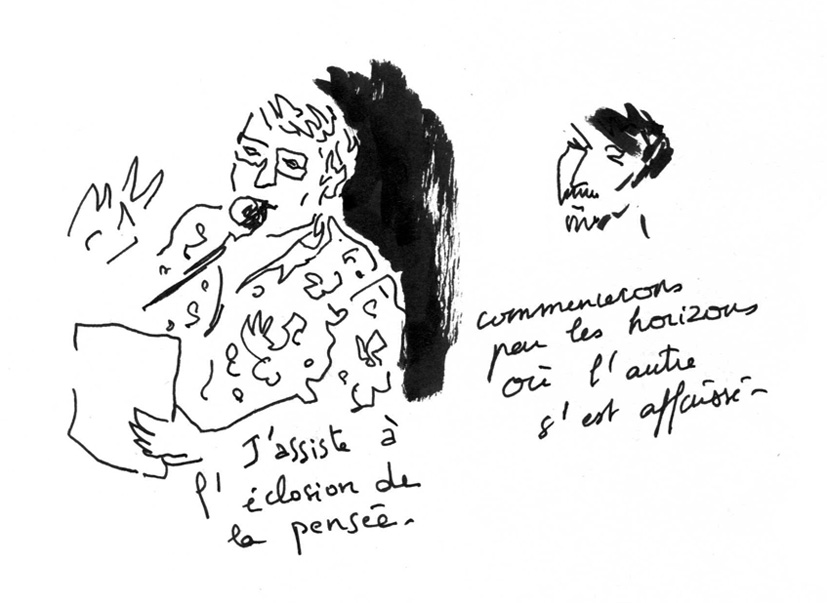 J'assiste à
l'éclosion de
la pensée.
commencerons
par les horizons
où l'autre
s'est affaissé.